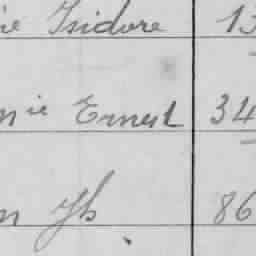 ie Isidore 13
nie Ernest 34
n Jh 86